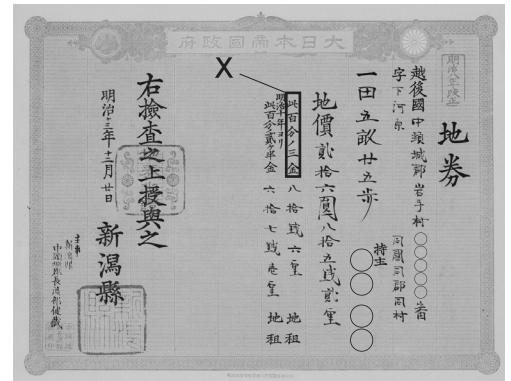 大日本帝國政府
明治八年改正
地券
越後國中頸城郡岩手村○○○○○番
字下河原
同國同郡同村
一田五畝廿五歩
持主
○○○○
地價貳拾六圓八拾五銭貳厘
X
此百分ノ三金 八拾銭六厘 地租
明治十年ヨリ
此百分ノ貳ヶ半金 六拾七銭壱厘 地租
右檢査之上授與之
明治十三年十二月廿日
新潟縣
主事
中頸城郡長